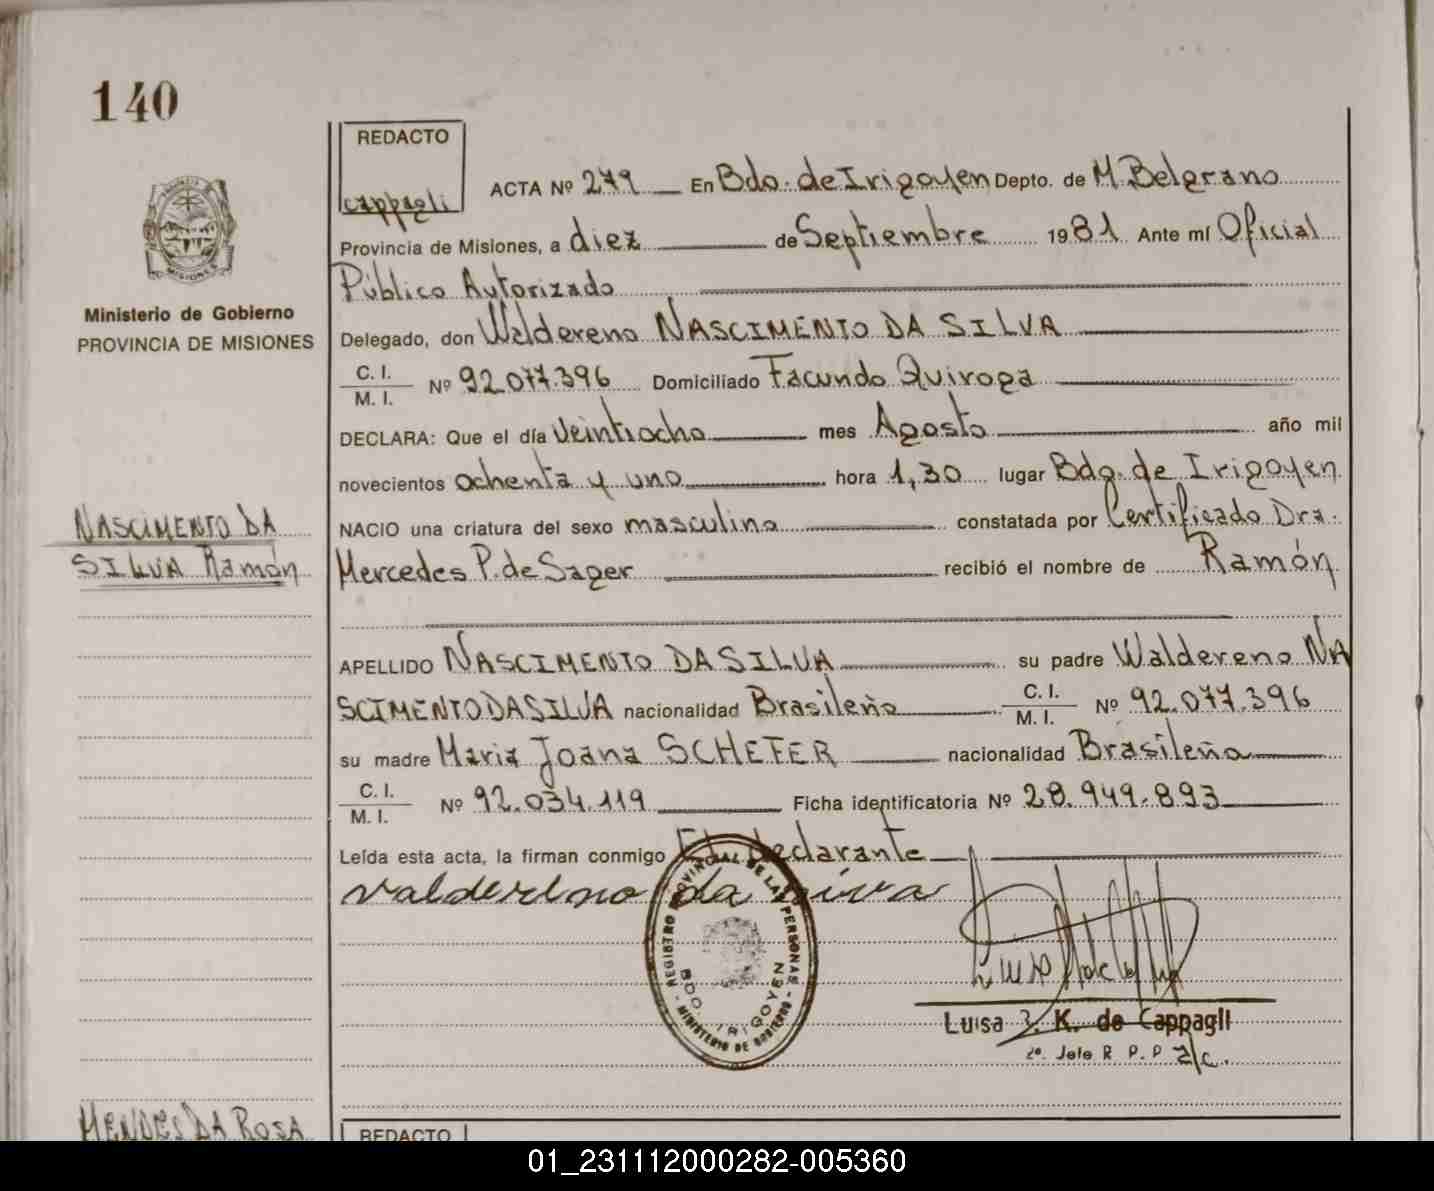 140
REDACTO
Cappagli
ACTA Nº 279 En Bdo. de Irigoyen Depto. de M. Belgrano
Provincia de Misiones, a diez de Septiembre 1981 Ante mí Oficial
Público Autorizado
Delegado, don Waldereno NASCIMENTO DA SILVA
C. I.
M. I. Nº 92.077.396 Domiciliado Facundo Quiroga
DECLARA: Que el día Veintiocho mes Agosto año mil
novecientos ochenta y uno hora 1,30 lugar Bdo. de Irigoyen
NACIO una criatura del sexo masculino constatada por Certificado Dra.
Mercedes P. de Sager recibió el nombre de Ramón
APELLIDO NASCIMENTO DA SILVA su padre Waldereno NA
SCIMENTO DA SILVA nacionalidad Brasileño C. I.
M. I. Nº 92.077.396
su madre Maria Joana SCHEFER nacionalidad Brasileña
C. I.
M. I. Nº 92.034.119 Ficha identificatoria Nº 28.949.893
Leída esta acta, la firman conmigo El declarante
valdereno da silva
Luisa K. de Cappagli
2º. Jefe R. P. P. a/c.
REGISTRO PROVINCIAL DE LAS PERSONAS - MINISTERIO DE GOBIERNO -
BDO. IRIGOYEN
MISIONES
Ministerio de Gobierno
PROVINCIA DE MISIONES
NASCIMENTO DA
SILVA Ramón
MENDES DA ROSA
REDACTO
01_231112000282-005360